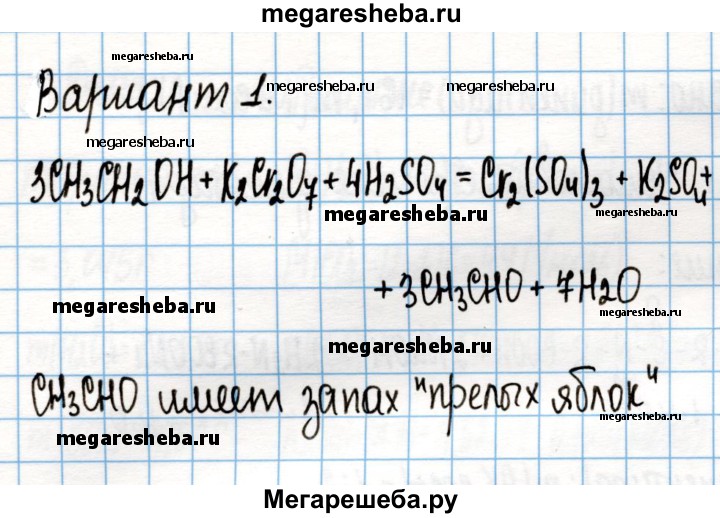 megaresheba.ru
megaresheba.ru
Вариант 1.
megaresheba.ru megaresheba.ru
megaresheba.ru
3CH3CH2OH + K2Cr2O7 + 4H2SO4 = Cr2(SO4)3 + K2SO4+
megaresheba.ru megaresheba.ru
+ 3CH3CHO + 7H2O
megaresheba.ru
megaresheba.ru
CH3CHO имеет запах "прелых яблок"
megaresheba.ru megaresheba.ru
Мегарешеба.ру